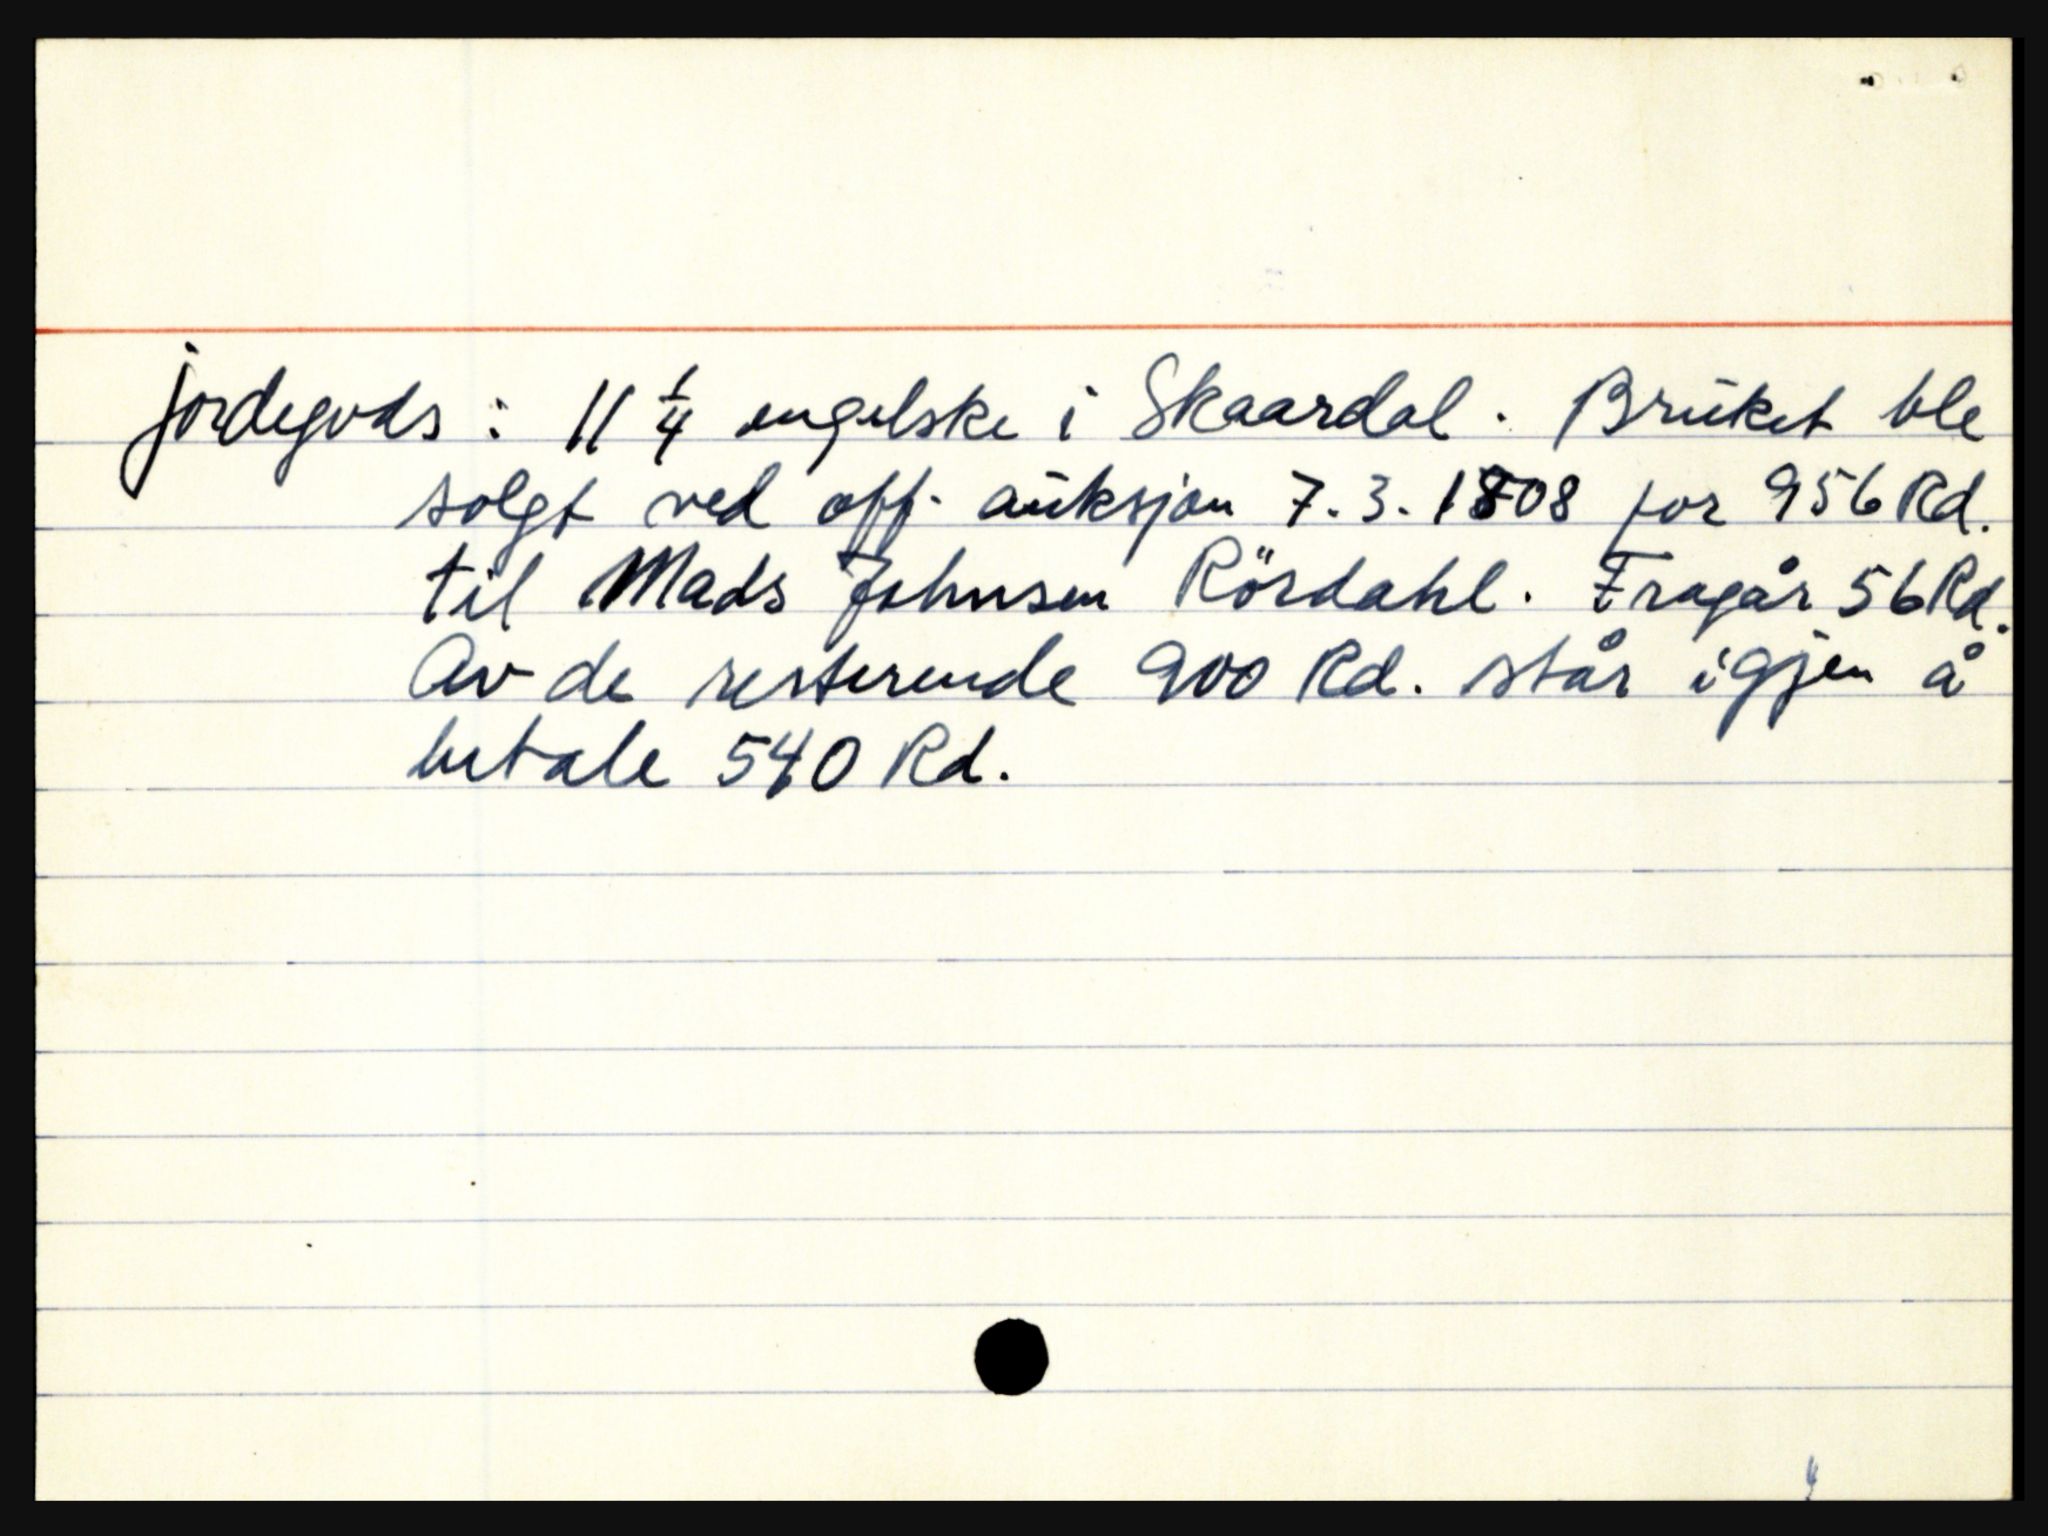 jordegods : 11 1/4 engelske i Skaardal. Bruket ble
solgt ved off. auksjon 7.3.1808 for 956 Rd.
til Mads Johnsen Rösdahl. Fragår 56 Rd.
Av de resterende 900 Rd. står igjen å
betale 540 Rd.